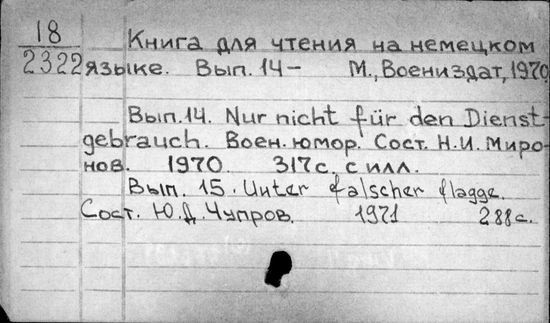 18 Книга для чтения на немецком
2322 языке. Вып. 14 – М., Воениздат, 1970
Вып. 14. Nur nicht für den Dienst-
gebrauch. Воен. юмор. Сост. Н.И. Миро-
нов. 1970. 317 с. с илл.
Вып. 15. Unter falscher flagge.
Сост. Ю.Д. Чупров. 1971 288 с.